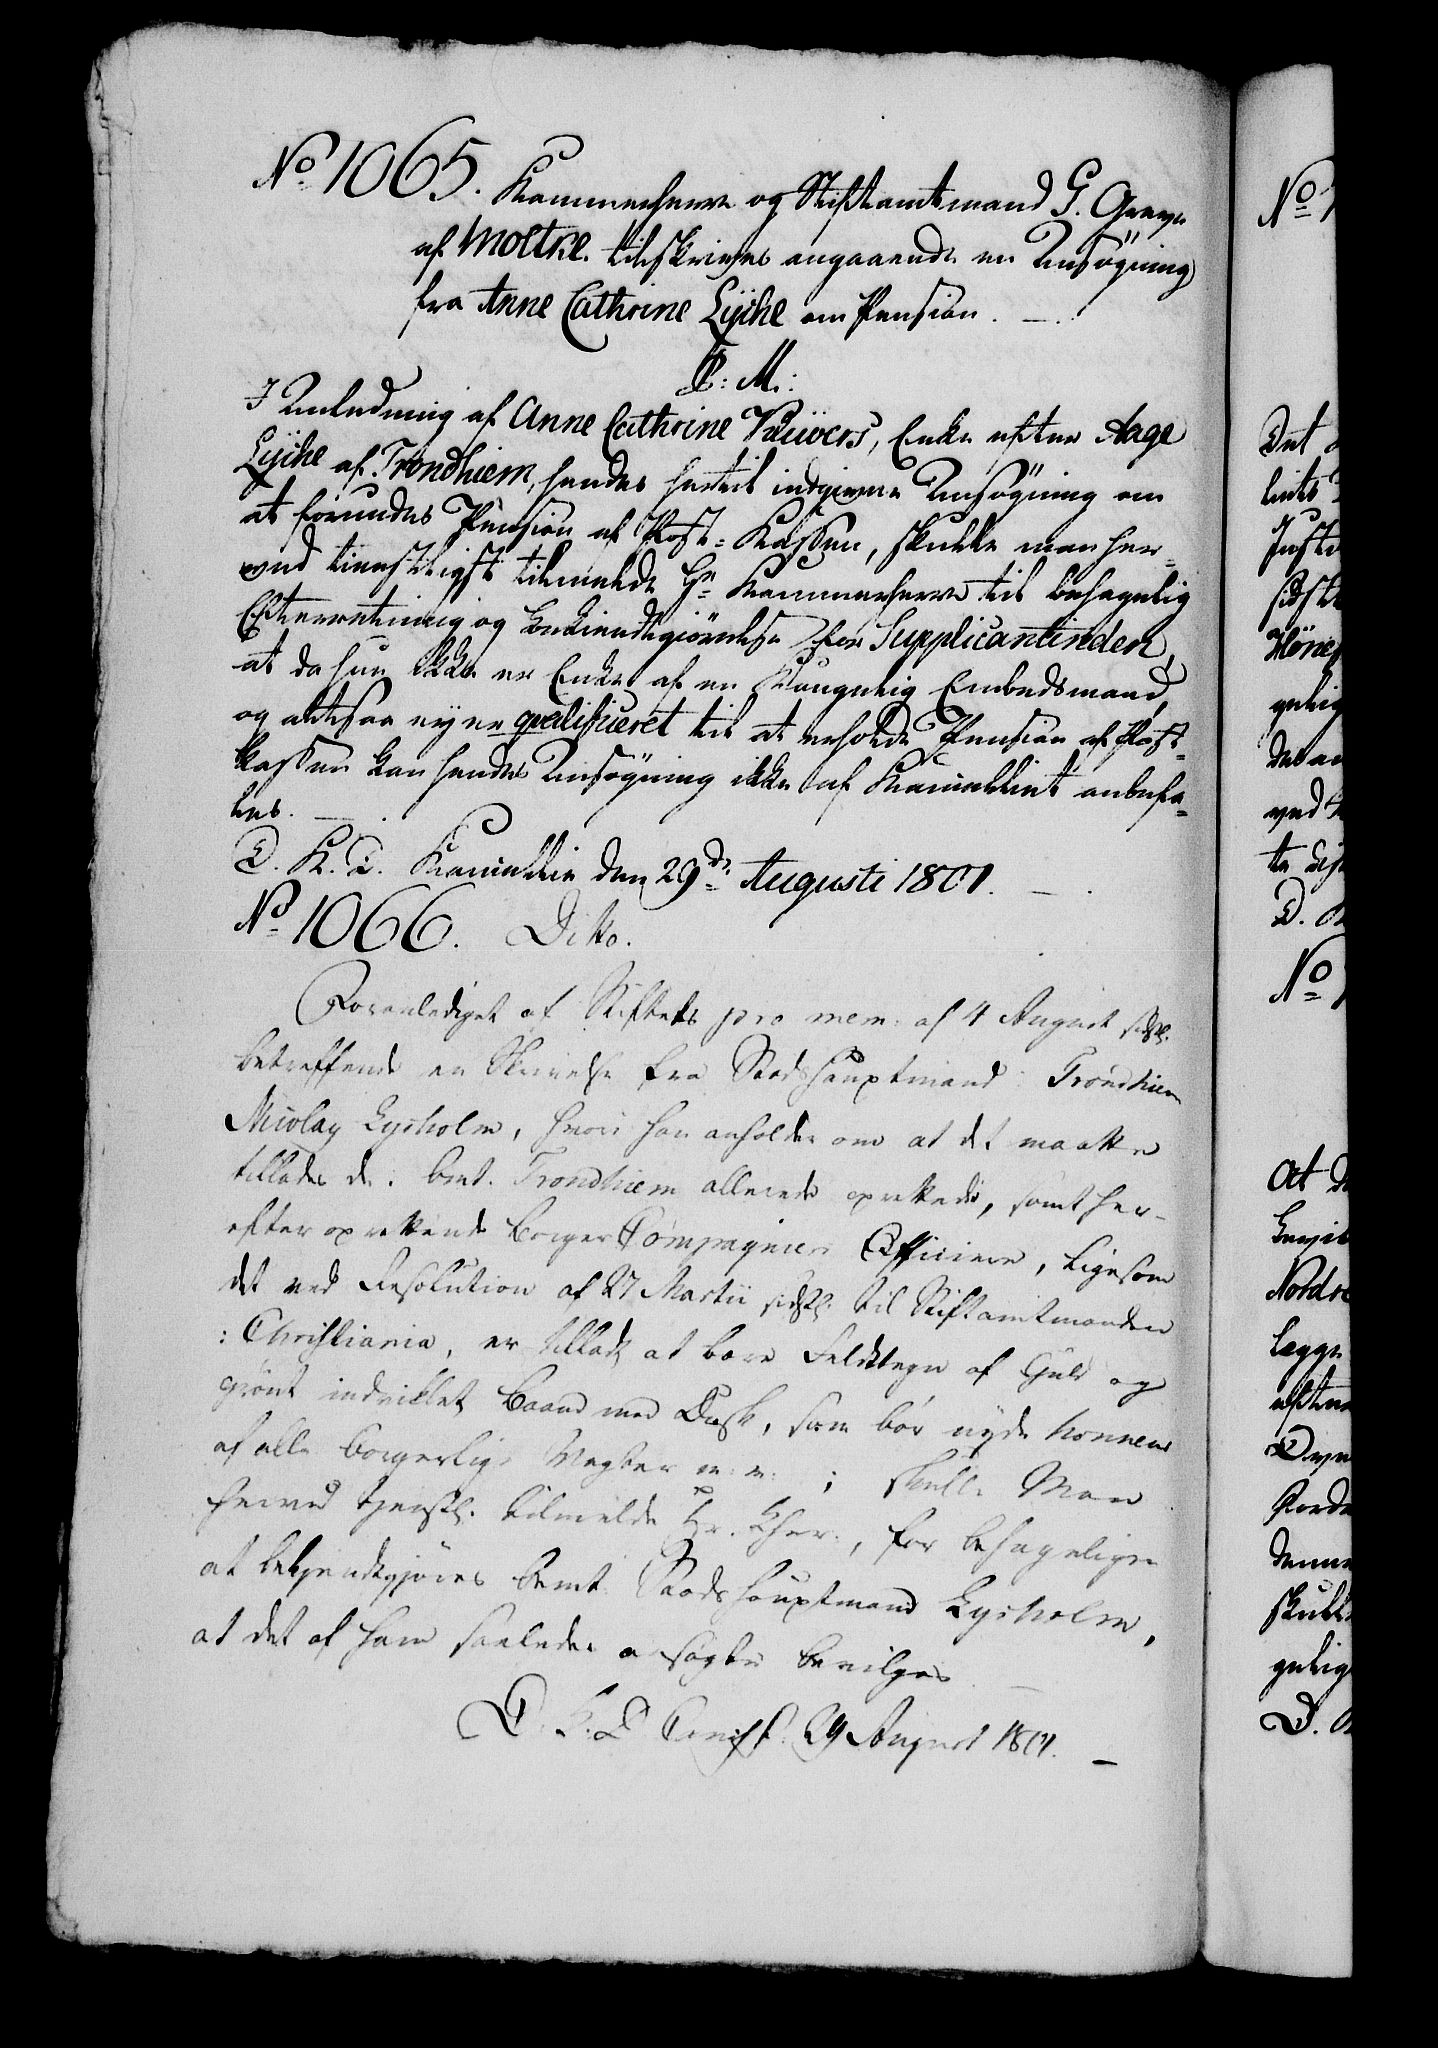 No 1065. Kammerherre og Stiftamtmand G. Greve
af Moltke tilskrives angaaende en Ansøgning
fra Anne Cathrine Lÿche om Pension. —.
P: M:
I Anledning af Anne Cathrine Vauvers, Enke efter Aage
Lÿche af Trondhiem, hendes hertil indgivne Ansøgning om
at forundes Pension af Post-Kassen, skulde man her-
ved tienstligst tilmelde Hr Kammerherre til behagelig
Efterretning og Bekiendtgiørelse for Supplicantinden,
at da hun ikke er Enke af en Kongelig Embedsmand,
og altsaa ey er qvalificeret til at erholde Pension af Post-
kassen kan hendes Ansøgning ikke af Kancelliet anbefa-
les. —.
D. K. D. Kancellie den 29de Augusti 1801. —.
No 1066. Ditto.
Foranlediget af Stiftets pro mem: af 4 August sidstl.
betreffende en Skrivelse fra Stadshauptmand i Trondhiem
Nicolay Lysholm, hvori han anholder om at det maatte
tillades de i bmt. Trondhiem allerede oprettede, samt her-
efter oprettende Borger Compagniers Officiere, ligesom
det ved Resolution af 27 Martii sidstl. til Stiftamtmanden
i Christiania, er tilladt at bære Felttegn af Guld og
grönt indvirket Baand med Qvast, som bör nyde honneur
af alle borgerlige Vagter m: v: ; skulle Man
herved tienstl. tilmelde Hr. Kher., for behageligen
at bekjendtgjöres bemt. Stadshauptmand Lysholm,
at det af ham saaledes ansøgte bevilges —
D. K. D. Cancel. 29 August 1801. —
No
Det
Juste
sidste
gelig
ved
D.
No
At
Nordre
legge
skulle
gelig
D.